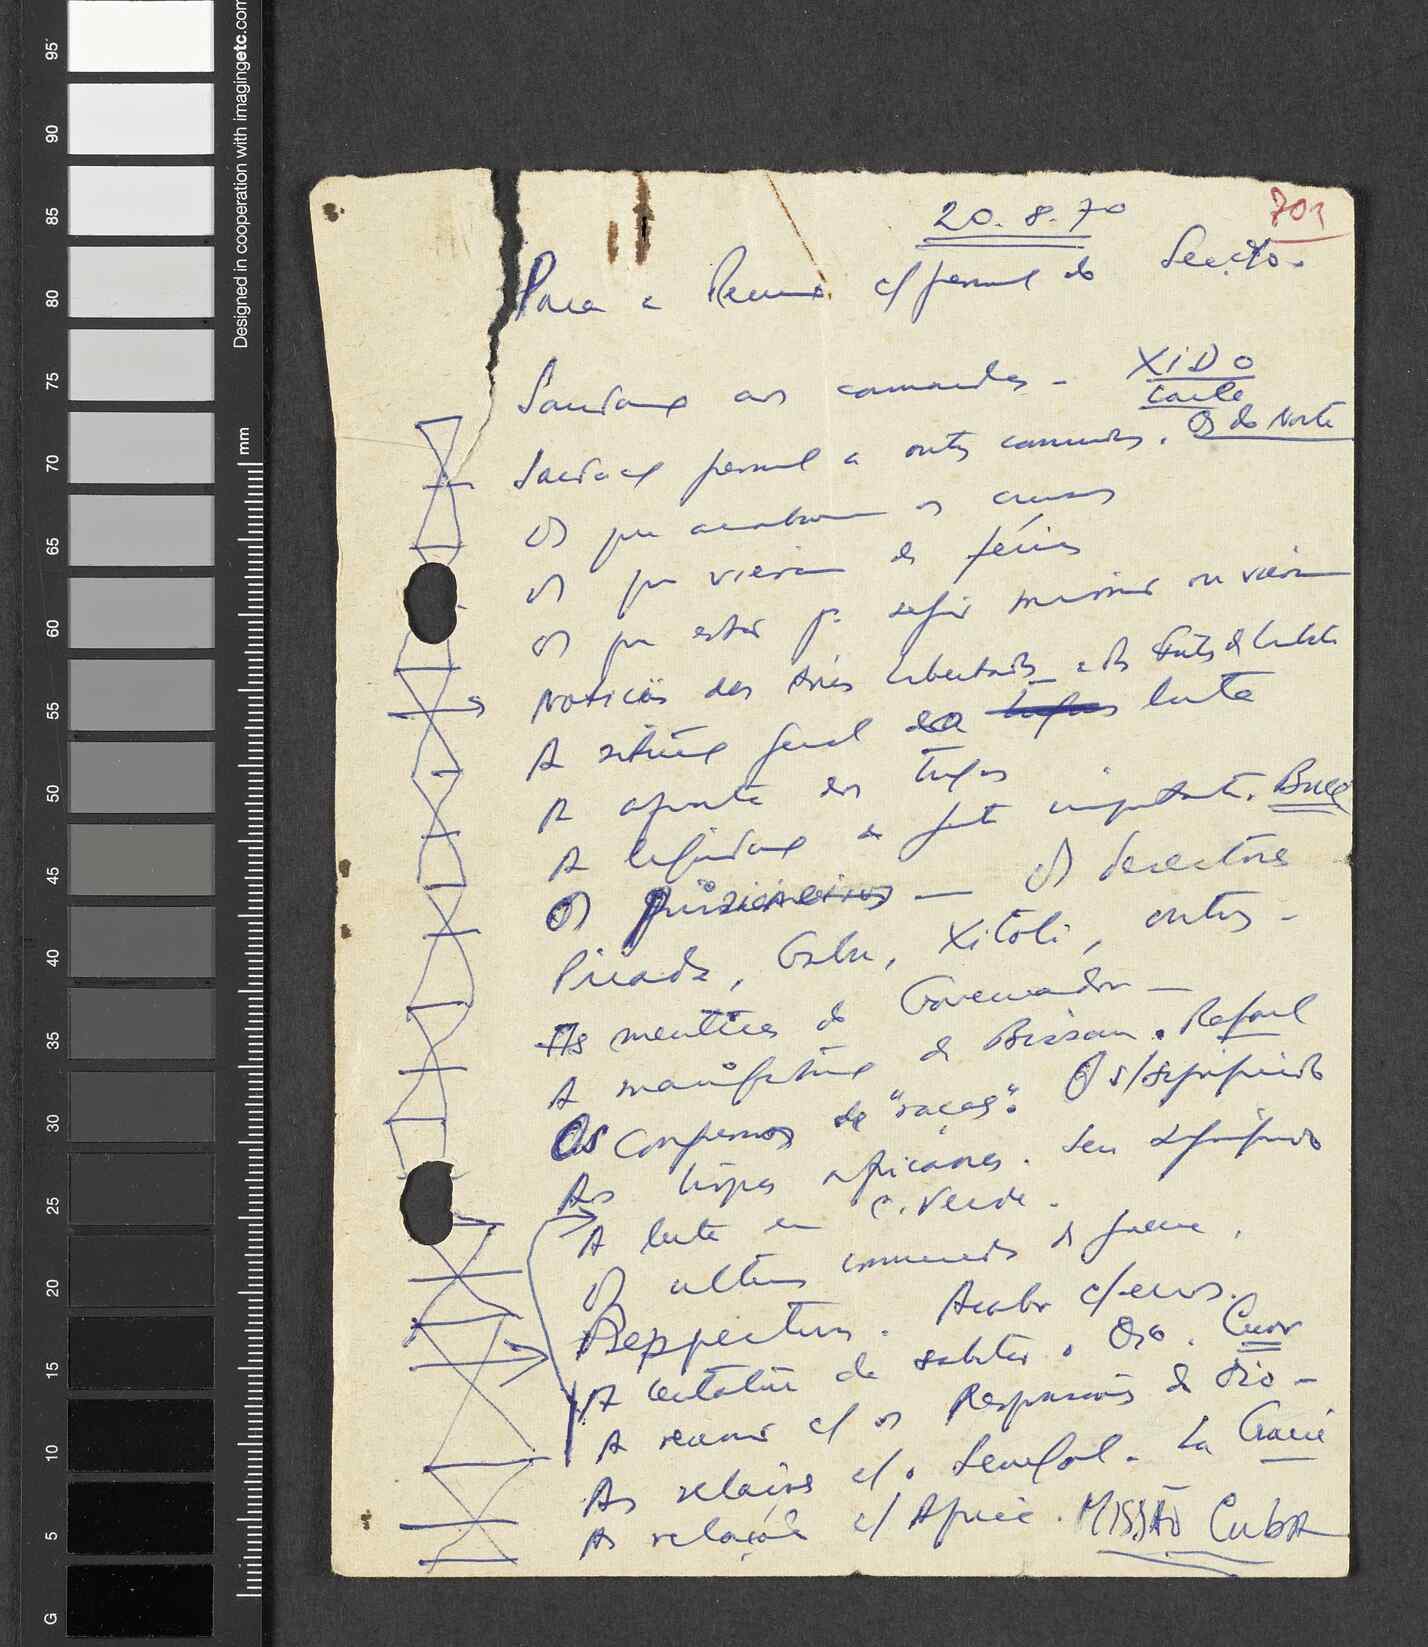 20.8.70
701
Para a Reunião c/ pessoal do Secreto.
Saudação aos camaradas -
XIDO
Carta
Saudação pessoal a outros camaradas. Os do Norte
Os que acabaram os cursos
Os que vieram de férias
Os que estão p. seguir missões ou vieram
Notícias das Áreas libertadas e da Frente de luta
A situação geral da luta
A dos tugas
A liquidação de gente importante.
Os prisioneiros — Os desertores
Pirada, Gabu, Xitoli, outros -
As mentiras do Governador —
A manifestação de Bissau. Rafael
Os Congressos de "raças". O s/ significado
As tropas africanas. Seu significado
A luta em C. Verde.
Os últimos comunicados de guerra.
Perspectivas. Acabar c/ erros.
A tentativa de
A reunião c/ os Responsáveis de Bió -
As relações c/ o Senegal. La
As relações c/ África. MISSÃO CUBA
95
90
85
80
75
70
65
60
55
50
45
40
35
30
25
20
15
10
5
G
mm
Designed in cooperation with imagingetc.com